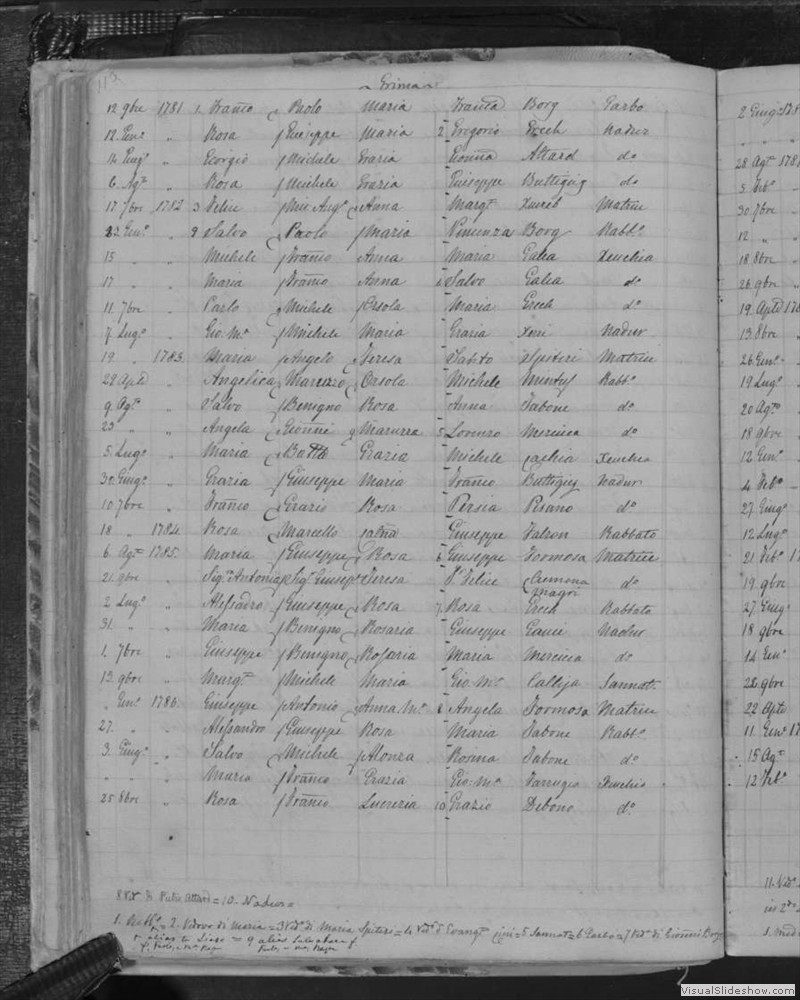 113.
Grima
12 9bre 1781 1. Franco Paolo Maria Franca Borg Garbo
12 Genr " Rosa Giuseppe Maria 2 Gregorio Grech Nadur
14 Giugo " Giorgio Michele Grazia Gionna Attard do
6 Agto " Rosa Michele Grazia Giuseppe Buttigieg do
17 7bre 1782 3 Felice Mio Ango Anna Margta Xuereb Matrice
23 Genro " 9 Salvo Paolo Maria Vincenza Borg Rabbo
15 " Michele Franco Anna Maria Galea Xeuchia
17 " Maria Franco Anna 4 Salvo Galea do
11 7bre " Carlo Michele Orsola Maria Grech do
7 Lugo " Gio Ma Michele Maria Grazia Xerri Nadur
19 " 1783 Maria Angelo Teresa Santo Spiteri Matrice
22 Aple " Angelica Marcaro Orsola Michele Rabbo
9 Ago " Salvo Benigno Rosa Anna Tabone do
23 " Angela Gionni Maruzza 5 Lorenzo Mercieca do
5 Lugo " Maria Batta Grazia Michele Xeuchia
30 Giugo " Grazia Giuseppe Maria Franco Buttigieg Nadur
10 7bre " Franco Grazio Rosa Persia Pisano do
18 " 1784 Rosa Marcello Giuseppe Falzon Rabbato
6 Agto 1785 Maria Giuseppe Rosa 6 Giuseppe Formosa Matrice
21 9bre " Siga Antonia Sigr Giuspe Teresa Sr Felice Cremona Magri do
2 Lugo " Alessadro Giuseppe Rosa 7 Rosa Grech Rabbato
31 " " Maria Benigno Rosaria Giuseppe Gauci Nadur
1 7bre " Giuseppe Benigno Rosaria Maria Mercieca do
13 9bre " Margta Michele Maria Gio Ma Calleja Sannat
" Genro 1786 Giuseppe Antonio Anna Ma 8 Angela Formosa Matrice
27 " " Alessandro Giuseppe Rosa Maria Tabone Rabbo
3 Giugo " Salvo Michele Alonza Rosina Tabone do
" " " Maria Franco Grazia Gio Ma Farrugia Xeuchia
25 8bre " Rosa Franco Lucrezia 10 Grazio Debono do
Attard = 10. Nadur =
1. Rabbo = 2. Vedovo di Maria = 3 Vedo di Maria Spiteri = 4 Vedo di Evangta = 5 Sannat = 6 Garbo = 7 Vedo di Gionni Borg
2 Giugo 178
28 Agto 178
30 7bre
12 "
18 8bre
26 9bre
19 Aple 178
13 8bre
26 Genro
19 Lugo
20 Ago
18 9bre
12 Genro
4 Febo
27 Giugo
12 Lugo
21 Febo 17
19 9bre
27 Giugo
18 9bre
14 Genro
22 9bre
22 Aple
11 Genro 17
15 Ago
12 Febo
11. Vedo
VisualSlideshow.com